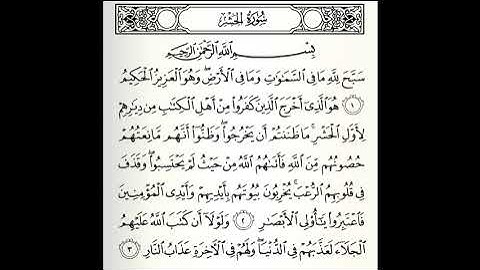 سُورَةُ الْحَشْرِ
بِسْمِ اللَّهِ الرَّحْمَٰنِ الرَّحِيمِ
سَبَّحَ لِلَّهِ مَا فِي السَّمَٰوَٰتِ وَمَا فِي الْأَرْضِ ۖ وَهُوَ الْعَزِيزُ الْحَكِيمُ
١ هُوَ الَّذِي أَخْرَجَ الَّذِينَ كَفَرُوا مِنْ أَهْلِ الْكِتَٰبِ مِن دِيَٰرِهِمْ
لِأَوَّلِ الْحَشْرِ ۚ مَا ظَنَنتُمْ أَن يَخْرُجُوا ۖ وَظَنُّوا أَنَّهُم مَّانِعَتُهُمْ
حُصُونُهُم مِّنَ اللَّهِ فَأَتَىٰهُمُ اللَّهُ مِنْ حَيْثُ لَمْ يَحْتَسِبُوا ۖ وَقَذَفَ
فِي قُلُوبِهِمُ الرُّعْبَ ۚ يُخْرِبُونَ بُيُوتَهُم بِأَيْدِيهِمْ وَأَيْدِي الْمُؤْمِنِينَ
فَاعْتَبِرُوا يَٰأُولِي الْأَبْصَٰرِ ٢ وَلَوْلَا أَن كَتَبَ اللَّهُ عَلَيْهِمُ
الْجَلَاءَ لَعَذَّبَهُمْ فِي الدُّنْيَا ۖ وَلَهُمْ فِي الْآخِرَةِ عَذَابُ النَّارِ ٣